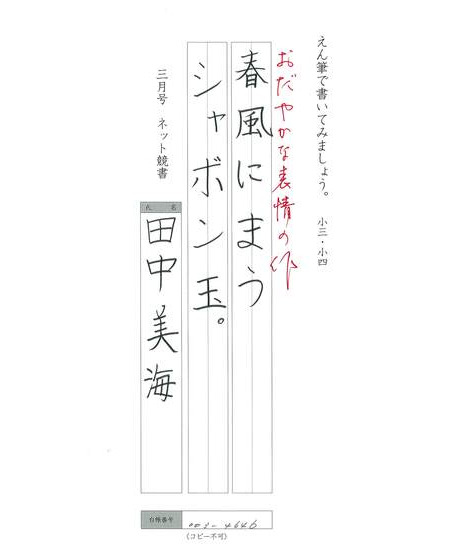 えん筆で書いてみましょう。 小三・小四
おだやかな表情の作
春風にまう
シャボン玉。
三月号 ネット競書
氏 名
田中美海
台帳番号
002-4646
(コピー不可)